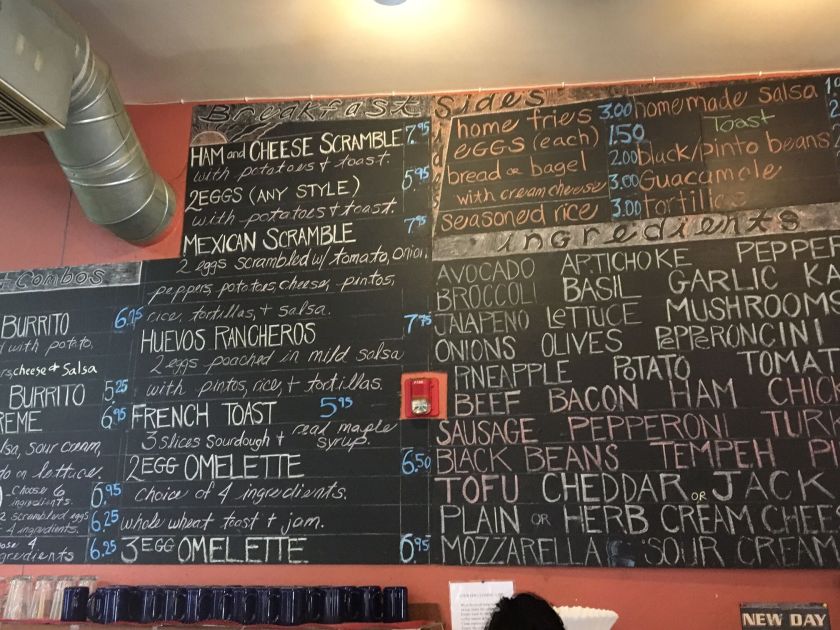 Combos
BURRITO 6.75
with potato,
cheese + Salsa
BURRITO 5.25
6.95
sour cream,
on lettuce.
choose 6 6.95
ingredients.
2 scrambled eggs 6.25
4 ingredients.
4 6.25
Breakfast
HAM and CHEESE SCRAMBLE 7.95
with potatoes + toast.
2 EGGS (ANY STYLE) 5.95
with potatoes + toast.
MEXICAN SCRAMBLE 7.95
2 eggs scrambled w/ tomato, onion,
peppers, potatoes, cheese, pintos,
rice, tortillas, + salsa.
HUEVOS RANCHEROS 7.75
2 eggs poached in mild salsa
with pintos, rice, + tortillas.
FRENCH TOAST 5.95
3 slices sourdough + real maple
syrup.
2 EGG OMELETTE 6.50
choice of 4 ingredients.
whole wheat toast + jam.
3 EGG OMELETTE 6.95
Sides
home fries 3.00
eggs (each) 1.50
bread or bagel 2.00
with cream cheese 3.00
seasoned rice 3.00
homemade salsa
Toast
black/pinto beans
Guacamole
tortillas
ingredients
AVOCADO ARTICHOKE PEPPER
BROCCOLI BASIL GARLIC KA
JALAPENO LETTUCE MUSHROOMS
ONIONS OLIVES PEPPERONCINI
PINEAPPLE POTATO TOMAT
BEEF BACON HAM CHIC
SAUSAGE PEPPERONI TUR
BLACK BEANS TEMPEH
TOFU CHEDDAR or JACK
PLAIN OR HERB CREAM CHEE
MOZZARELLA SOUR CREAM
FIRE
NEW DAY